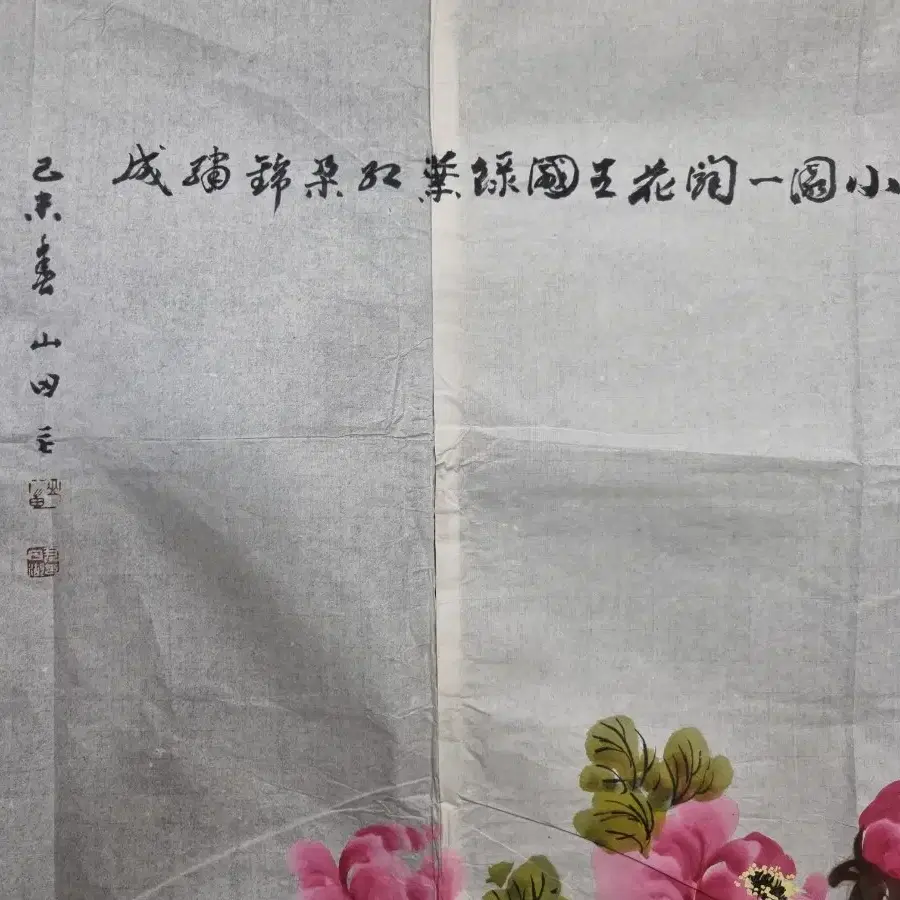 小園一花王國綠葉紅朶錦繡成
己未春 山田